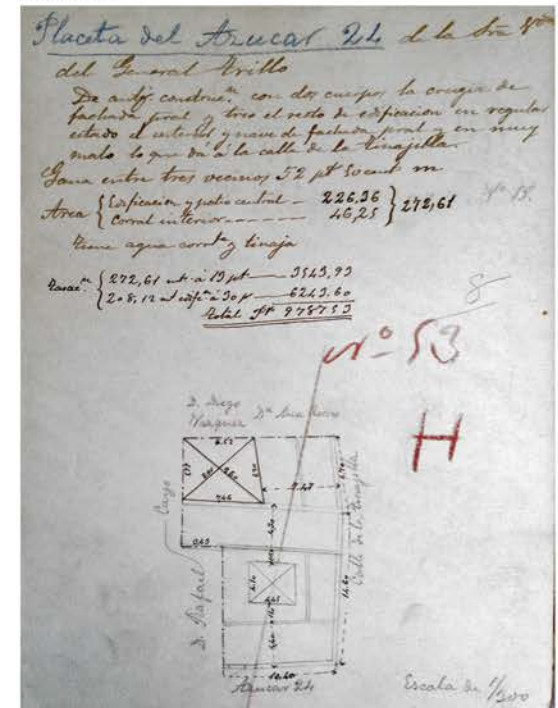 Placeta del Azucar 24 de la Sra
del General Trillo
De antig. construc.ⁿ con dos cuerpos la crugia de
fachada pral y tres el resto de edificacion en regular
estado el interior y nave de fachada pral y en muy
malo lo que dá á la calle de la tinajilla.
Gana entre tres vecinos 52 pt 50 cent m.
Area { Edificacion y patio central — 226,36 } 272,61
Corral interior - - - - - 46,25
tiene agua corrte y tinaja
Tasac.ⁿ { 272,61 mt á 13 pt — 3543,93
208,12 mt edif.ⁿ á 30 p — 6243.60
Total Pt 9787 53
8
Nº 53
H
D. Diego
Vazquez Dª Ana
7.47
Calle de la tinajilla
D. Rafael Cazo
14.60
10.40
Azucar 24
Escala de 1/300